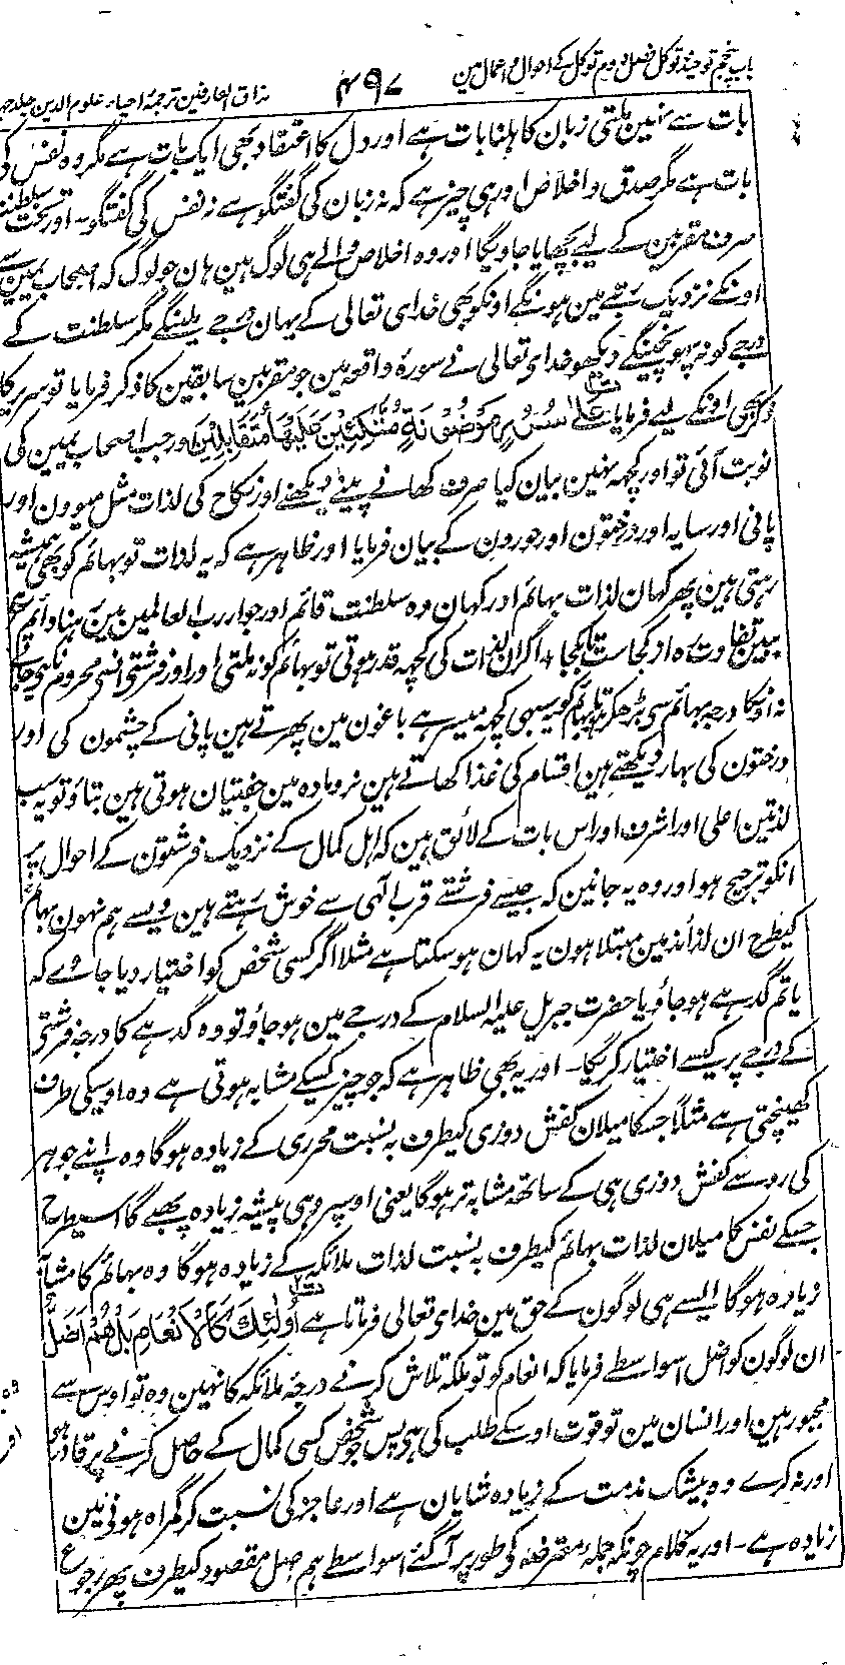 باب پنجم توحید و توکل فصل دوم توکل کے احوال و اعمال مین
۴۹۷
مذاق العارفین ترجمۂ احیاء علوم الدین جلد چہا
بات سے نہین ہلتی زبان کا ہلنا بات ہے اور دل کا اعتقاد بھی ایک بات ہے مگر وہ نفس کی
بات ہے مگر صدق و اخلاص اور ہی چیز ہے کہ نہ زبان کی گفتگو ہے نہ نفس کی گفتگو۔ اور تخت سلطنت
صرف مقربین کے لیے بچھایا جاویگا اور وہ اخلاص والے ہی لوگ ہین ہان جو لوگ کہ اصحاب یمین سے
اونکے نزدیک رتبے مین ہونگے اونکو بھی خدای تعالی کے یہان درجے ملینگے مگر سلطنت کے
درجے کو نہ پہونچینگے دیکھو خدای تعالی نے سورۂ واقعہ مین جو مقربین سابقین کا ذکر فرمایا تو سریر کا
ذکر بھی اونکے لیے فرمایا عَلٰی سُرُرٍ مَوْضُوْنَةٍ مُتَّكِئِیْنَ عَلَیْهَا مُتَقَابِلِیْنَ اور جب اصحاب یمین کی
نوبت آئی تو اور کچھ نہین بیان کیا صرف کھانے پینے دیکھنے اور نکاح کی لذات مثل میوون اور
پانی اور سایہ اور درختون اور حورون کے بیان فرمایا اور ظاہر ہے کہ یہ لذات تو بہائم کو بھی ہمیشہ
رہتی ہین پھر کہان لذات بہائم اور کہان وہ سلطنت قائم اور جوار رب العالمین مین رہنا دائم ع
ببین تفاوت رہ از کجاست تا بکجا ٭ اگر ان لذات کی کچھہ قدر ہوتی تو بہائم کو نہ ملتی اور اور فرشتی انسی محروم نکیے جاتے
نہ اونکا درجہ بہائم سی بڑھکر ہوتا بہائم کو یہ سبھی کچھہ میسر ہے باغون مین پھرتے ہین پانی کے چشمون کی اور
درختون کی بہار دیکھتے ہین اقسام کی غذا کھاتے ہین نر و مادہ مین جفتیان ہوتی ہین بتاؤ تو یہ سب
لذتین اعلی اور اشرف اور اس بات کے لائق ہین کہ اہل کمال کے نزدیک فرشتون کے احوال پر
انکو ترجیح ہو اور وہ یہ جانین کہ جیسے فرشتے قرب الٰہی سے خوش رہتے ہین ویسے ہم نہون بہائم
کیطرح ان لذائذ مین مبتلا ہون یہ کہان ہو سکتا ہے مثلا اگر کسی شخص کو اختیار دیا جاوے کہ
یا تم گدہے ہو جاؤ یا حضرت جبریل علیہ السلام کے درجے مین ہو جاؤ تو وہ گدہے کا درجہ فرشتی
کے درجے پر کیسے اختیار کریگا۔ اور یہ بھی ظاہر ہے کہ جو چیز کسیکے مشابہ ہوتی ہے وہ اوسیکی طرف
کھینچتی ہے مثلا جسکا میلان کفش دوزی کیطرف بہ نسبت محرری کے زیادہ ہوگا وہ اپنے جوہر
کی رو سے کفش دوزی ہی کے ساتھ مشابہ تر ہوگا یعنی اوسپر وہی پیشہ زیادہ پھبے گا اسیطرح
جسکے نفس کا میلان لذات بہائم کیطرف بہ نسبت لذات ملائکہ کے زیادہ ہوگا وہ بہائم کا مشابہ
زیادہ ہوگا ایسے ہی لوگون کے حق مین خدای تعالی فرماتا ہے اُولٰئِكَ كَالْاَنْعَامِ بَلْ هُمْ اَضَلُّ
ان لوگون کو اضل اسواسطے فرمایا کہ انعام کو تو ملکہ تلاش کرنے درجۂ ملائکہ کا نہین وہ تو اوس سے
مجبور ہین اور انسان مین تو قوت اوسکے طلب کی ہی پس جو شخص کسی کمال کے حاصل کرنے پر قادر ہو
اور نہ کرے وہ بیشک مذمت کے زیادہ شایان ہے اور عاجز کی نسبت کر گمراہ ہونی مین
زیادہ ہے۔ اور یہ کلام چونکہ جملۂ معترضہ کی طور پر آگئے اسواسطے ہم اصل مقصود کیطرف پھر رجوع